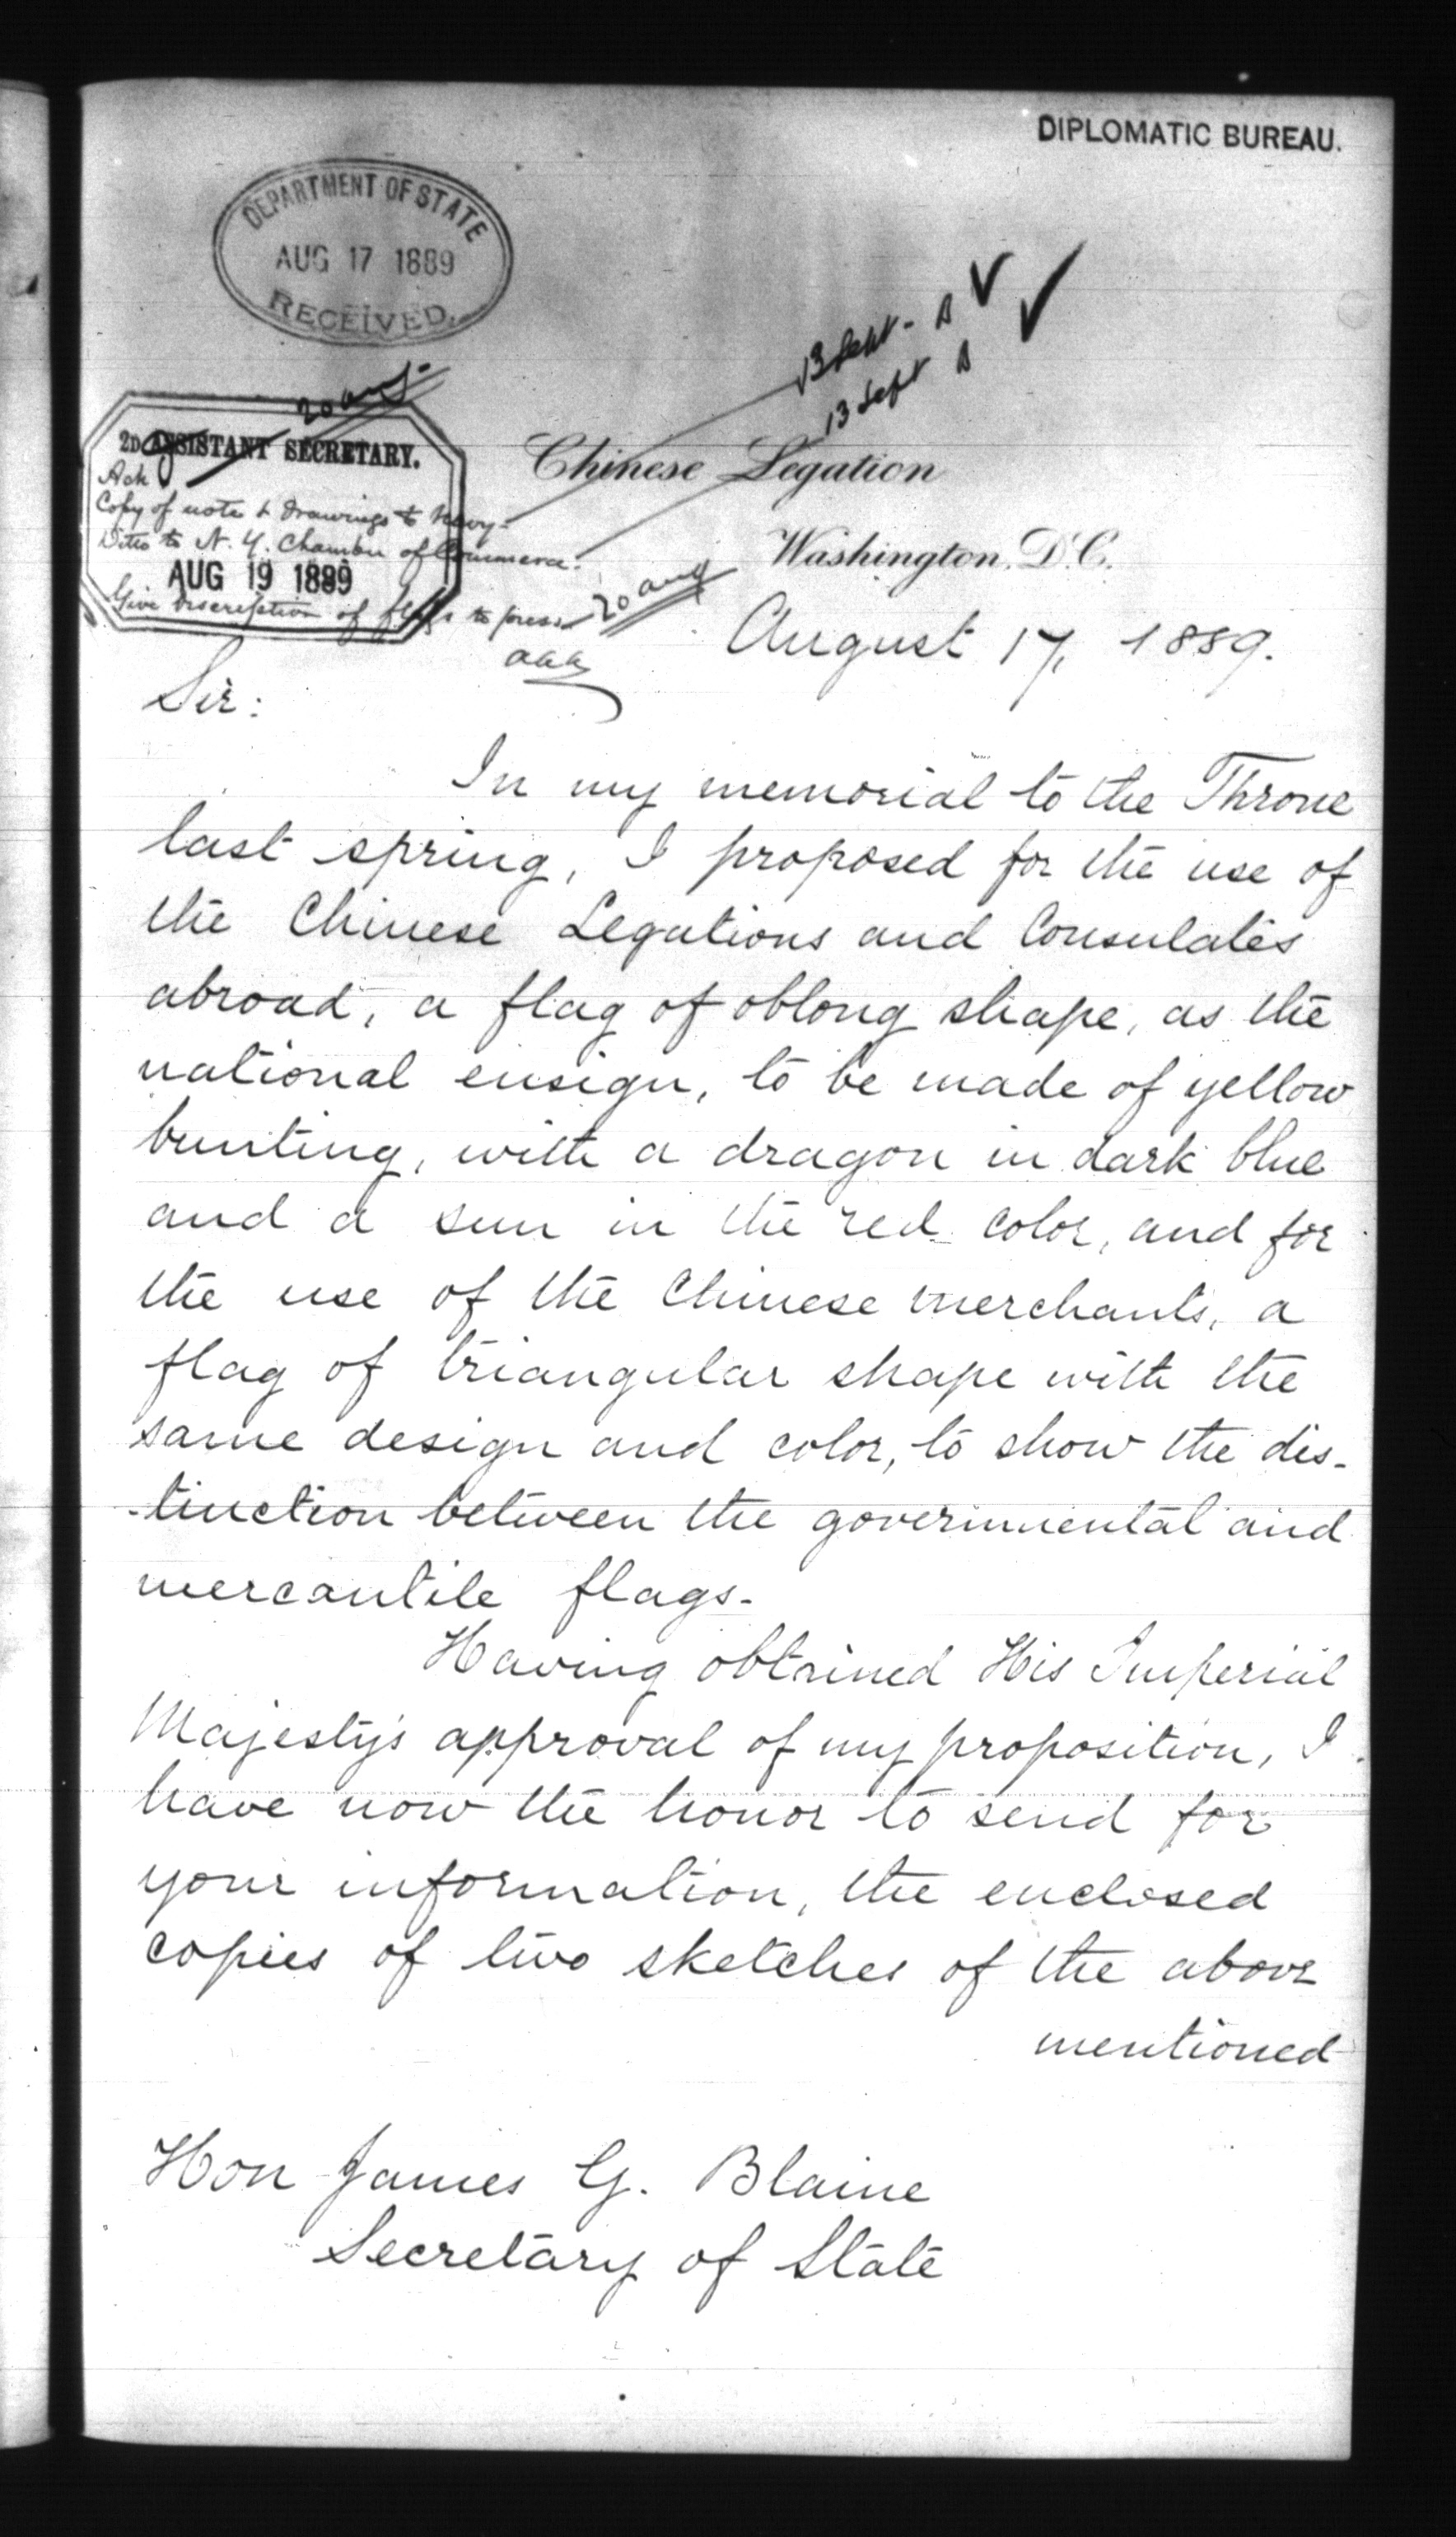 DIPLOMATIC BUREAU.
DEPARTMENT OF STATE
AUG 17 1889
RECEIVED.
13 Sept - A
13 Sept A
20 aug.
2D ASSISTANT SECRETARY.
Ack
Copy of note & Drawings to Navy-
Ditto to N. Y. Chamber of Commerce.
AUG 19 1889
Give description of flags to press 20 aug
aaa
Chinese Legation
Washington, D.C.
August 17, 1889.
Sir:
In my memorial to the Throne
last spring, I proposed for the use of
the Chinese Legations and Consulates
abroad, a flag of oblong shape, as the
national ensign, to be made of yellow
bunting, with a dragon in dark blue
and a sun in the red color, and for
the use of the Chinese merchants, a
flag of triangular shape with the
same design and color, to show the dis-
-tinction between the governmental and
mercantile flags.
Having obtained His Imperial
Majesty's approval of my proposition, I
have now the honor to send for
your information, the enclosed
copies of two sketches of the above
mentioned
Hon James G. Blaine
Secretary of State